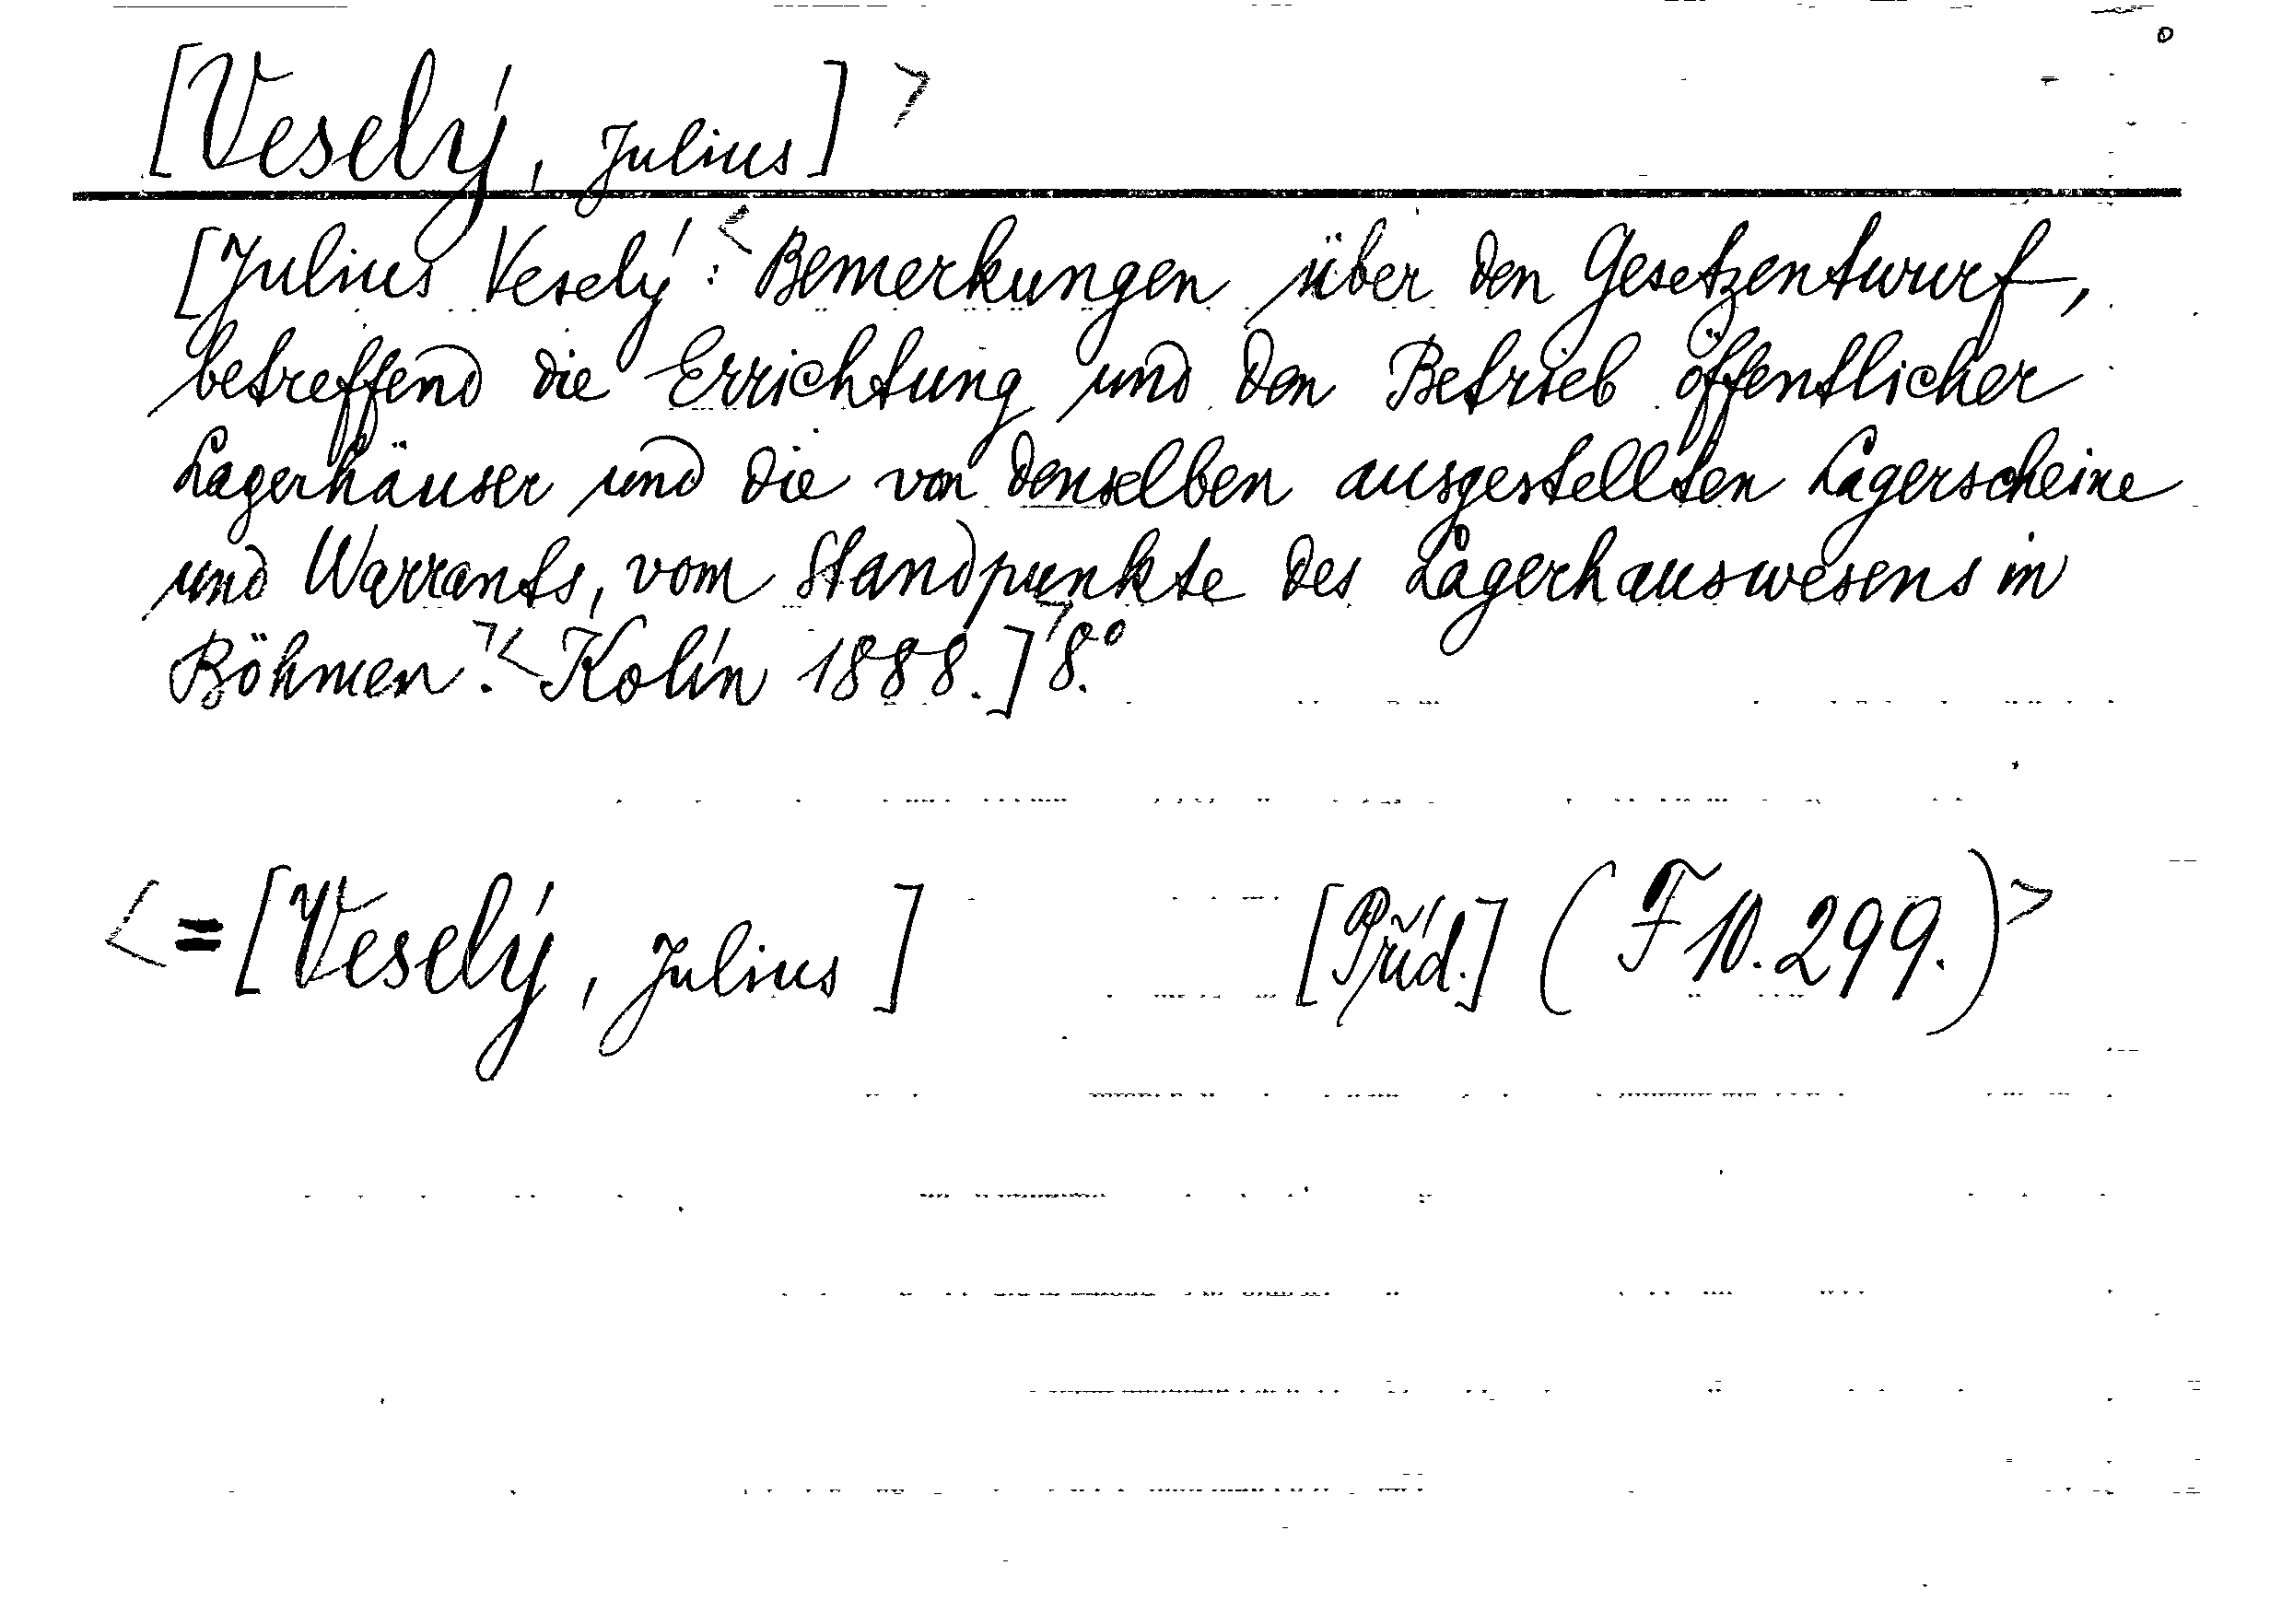 [Veselý, Julius] >
[Julius Veselý: < Bemerkungen über den Gesetzentwurf,
betreffend die Errichtung und den Betrieb öffentlicher
Lagerhäuser und die von denselben ausgestellten Lagerscheine
und Warrants, vom Standpunkte des Lagerhauswesens in
Böhmen. > < Kolín 1888.] > 8.°
< = [Veselý, Julius] [Příd.] (F 10.299.) >